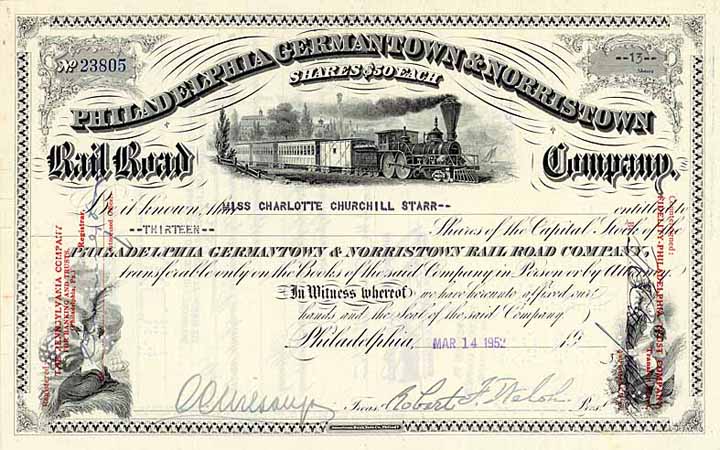 Nº 23805
--13--
Shares
PHILADELPHIA GERMANTOWN & NORRISTOWN
SHARES $50 EACH
Rail Road Company.
Be it known, that MISS CHARLOTTE CHURCHILL STARR-- entitled to
--THIRTEEN-- Shares of the Capital Stock of the
PHILADELPHIA GERMANTOWN & NORRISTOWN RAIL ROAD COMPANY,
transferable only on the Books of the said Company in Person or by Attorney
In Witness whereof we have hereunto affixed our
hands and the seal of the said Company
Philadelphia, MAR 14 1952 19
Treas. Robert F. Welsh Prest.
American Bank Note Co. Philada.
THE PENNSYLVANIA COMPANY
FOR BANKING AND TRUSTS
(Philadelphia, Pa.)
Registrar,
FIDELITY-PHILADELPHIA TRUST COMPANY